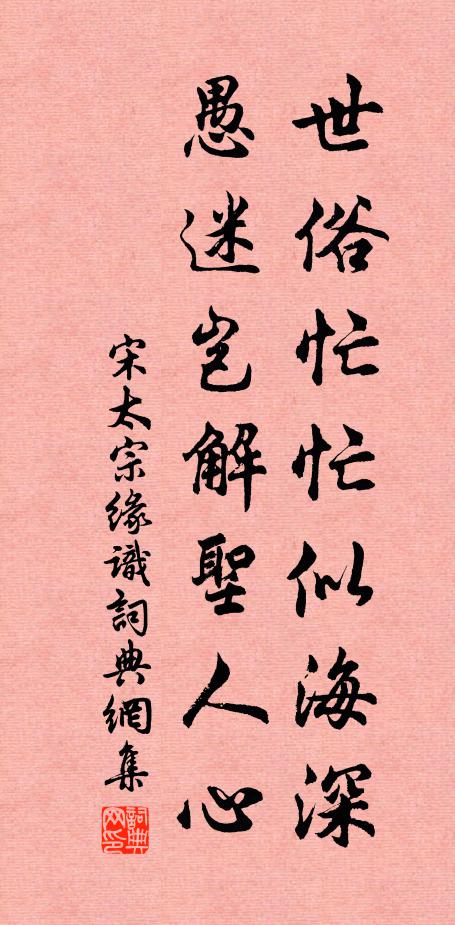 世俗忙忙似海深
愚迷岂解聖人心
宋太宗緣識詞典網集
詞典网印